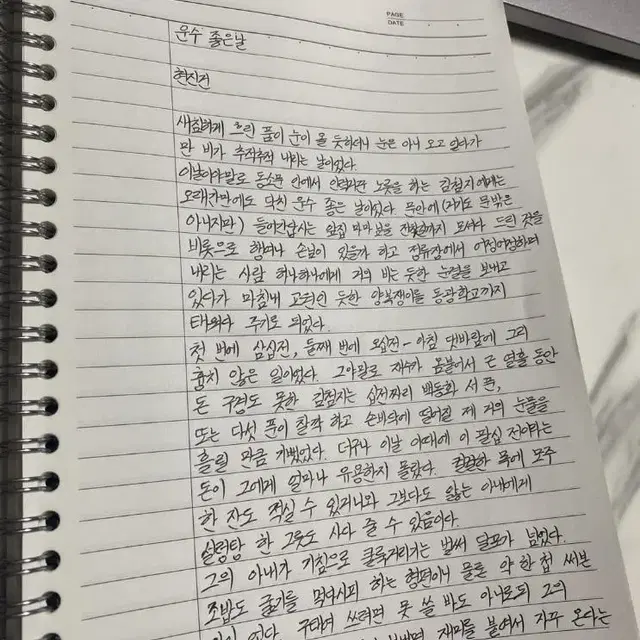 PAGE
DATE
운수 좋은날
현진건
새침하게 흐린 품이 눈이 올 듯하더니 눈은 아니 오고 얼다가
만 비가 추적추적 내리는 날이었다.
이날이야말로 동소문 안에서 인력거꾼 노릇을 하는 김첨지에게는
오래간만에도 닥친 운수 좋은 날이었다. 문안에(거기도 문밖은
아니지만) 들어간답시는 앞집 마나님을 전찻길까지 모셔다 드린 것을
비롯으로 행여나 손님이 있을까 하고 정류장에서 어정어정하며
내리는 사람 하나하나에게 거의 비는 듯한 눈결을 보내고
있다가 마침내 교원인 듯한 양복쟁이를 동광학교까지
태워다 주기로 되었다.
첫 번에 삼십전, 둘째 번에 오십전 - 아침 댓바람에 그리
흉치 않은 일이었다. 그야말로 재수가 옴붙어서 근 열흘 동안
돈 구경도 못한 김첨지는 십전짜리 백동화 서 푼,
또는 다섯 푼이 찰깍 하고 손바닥에 떨어질 제 거의 눈물을
흘릴 만큼 기뻤었다. 더구나 이날 이때에 이 팔십 전이라는
돈이 그에게 얼마나 유용한지 몰랐다. 컬컬한 목에 모주
한 잔도 적실 수 있거니와 그보다도 앓는 아내에게
설렁탕 한 그릇도 사다 줄 수 있음이다.
그의 아내가 기침으로 쿨룩거리기는 벌써 달포가 넘었다.
조밥도 굶기를 먹다시피 하는 형편이니 물론 약 한 첩 써본
일이 없다. 구태여 쓰려면 못 쓸 바도 아니로되 그의
보내면 재미를 붙여서 자꾸 온다는